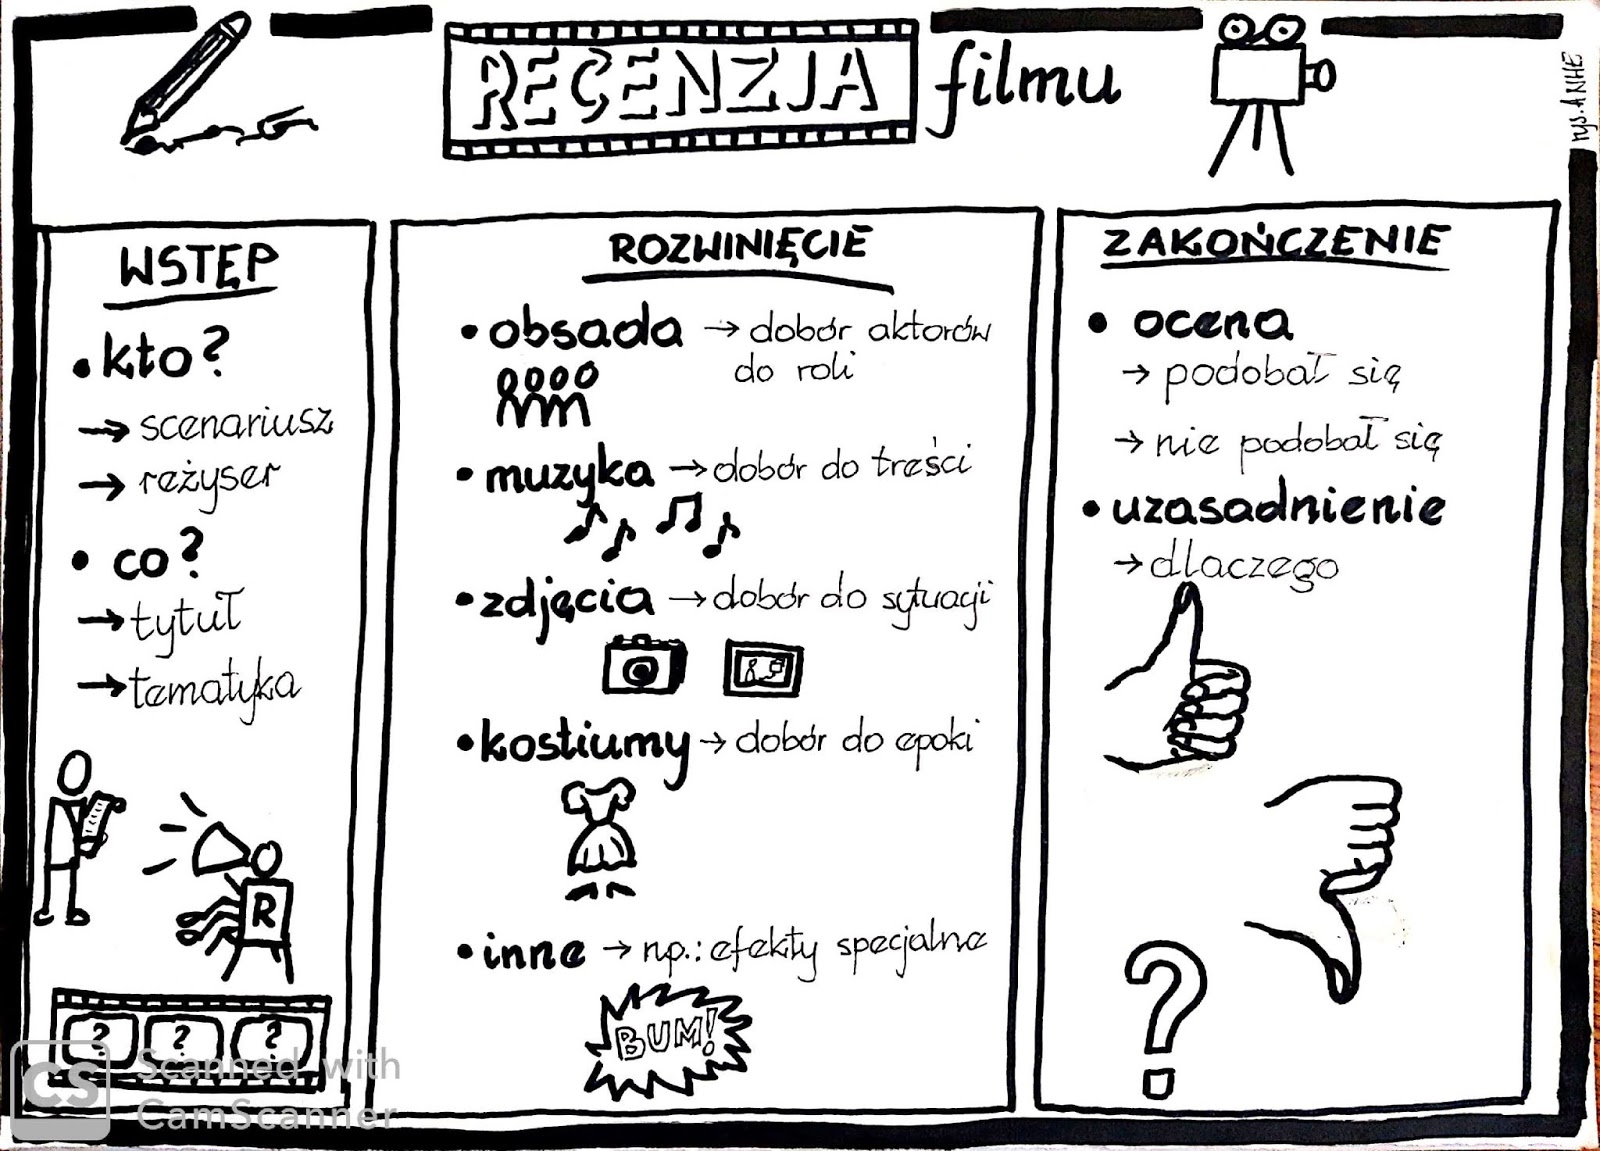 RECENZJA filmu
rys. ANHE
WSTĘP
• kto?
→ scenariusz
→ reżyser
• co?
→ tytuł
→ tematyka
R
? ? ?
ROZWINIĘCIE
• obsada → dobór aktorów
do roli
• muzyka → dobór do treści
• zdjęcia → dobór do sytuacji
• kostiumy → dobór do epoki
• inne → np.: efekty specjalne
BUM!
ZAKOŃCZENIE
• ocena
→ podobał się
→ nie podobał się
• uzasadnienie
→ dlaczego
?
CS
Scanned with
CamScanner